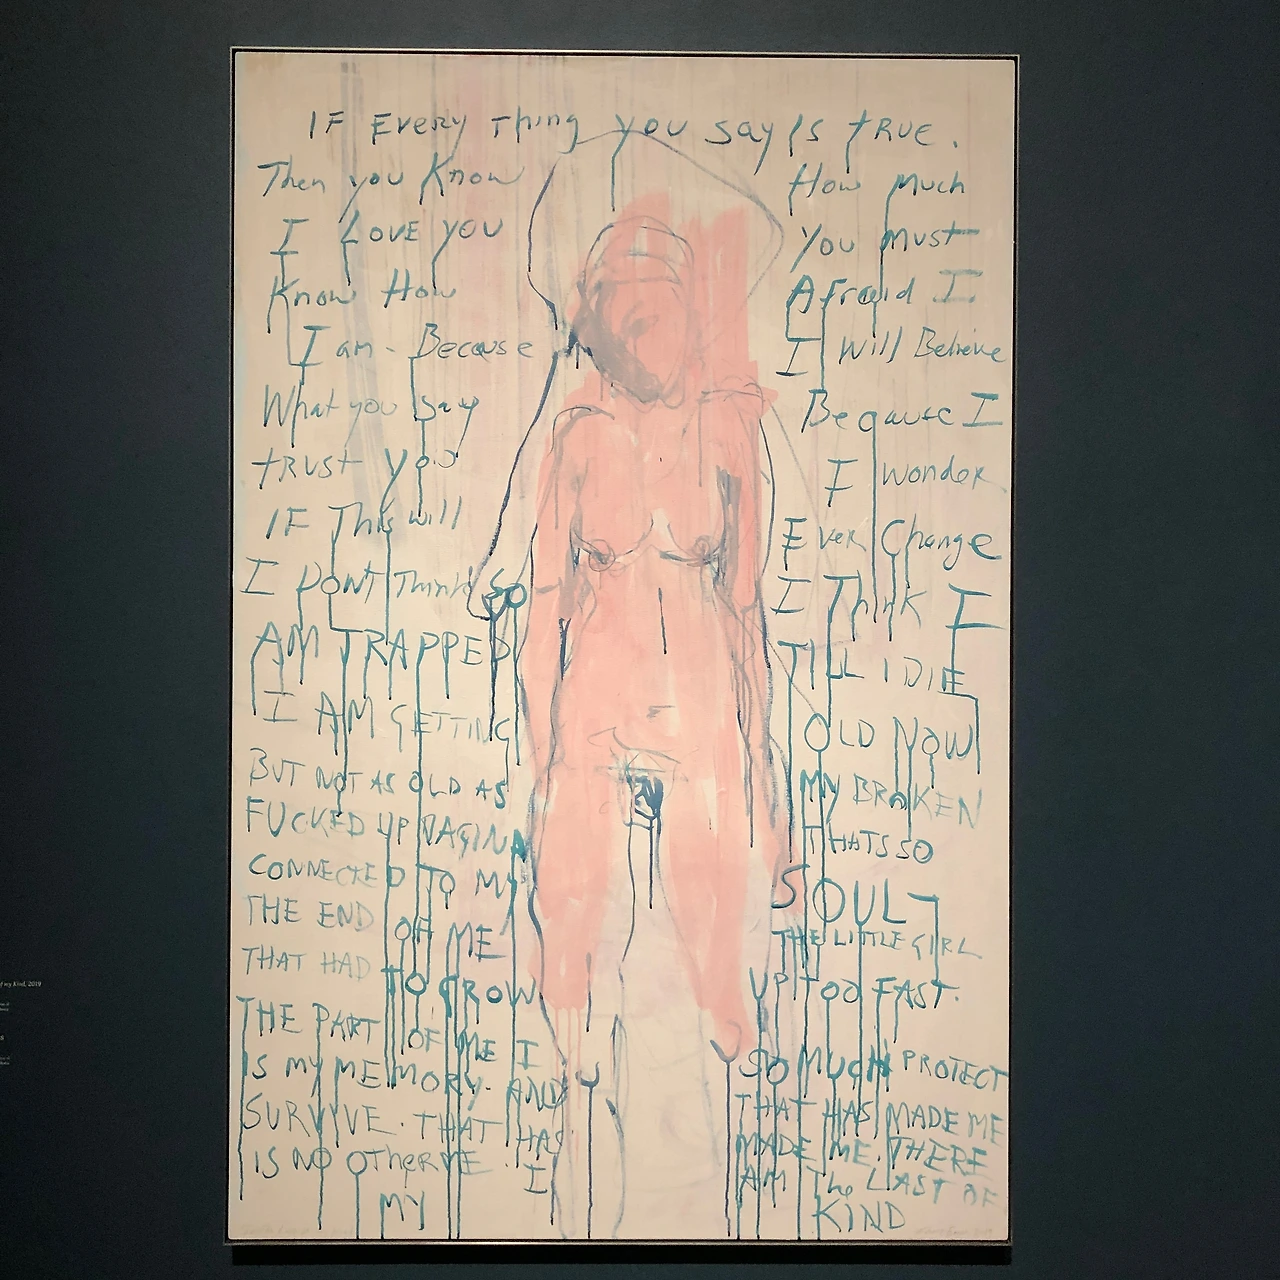 IF Every Thing you say Is tRUE.
Then you Know How Much
I LOVE YOU You Must
Know How Afraid I
I am - Because I Will Believe
What you say Because I
tRUSt you I wonder
IF This will Ever Change
I DONT Think so I Think I
AM TRAPPED TILL I DIE
I AM GETTING OLD NOW
BUT NOT AS OLD AS MY BROKEN
FUCKED UP VAGINA THATS SO
CONNECTED TO MY SOUL
THE END OF ME THE LITTLE GIRL
THAT HAD TO GROW UP TOO FAST.
THE PART OF ME I SO MUCH PROTECT
IS MY MEMORY. AND THAT HAS MADE ME
SURVIVE. THAT HAS MADE ME. THERE
IS NO OTherME. I AM The LAST OF
MY KIND
of my Kind, 2019